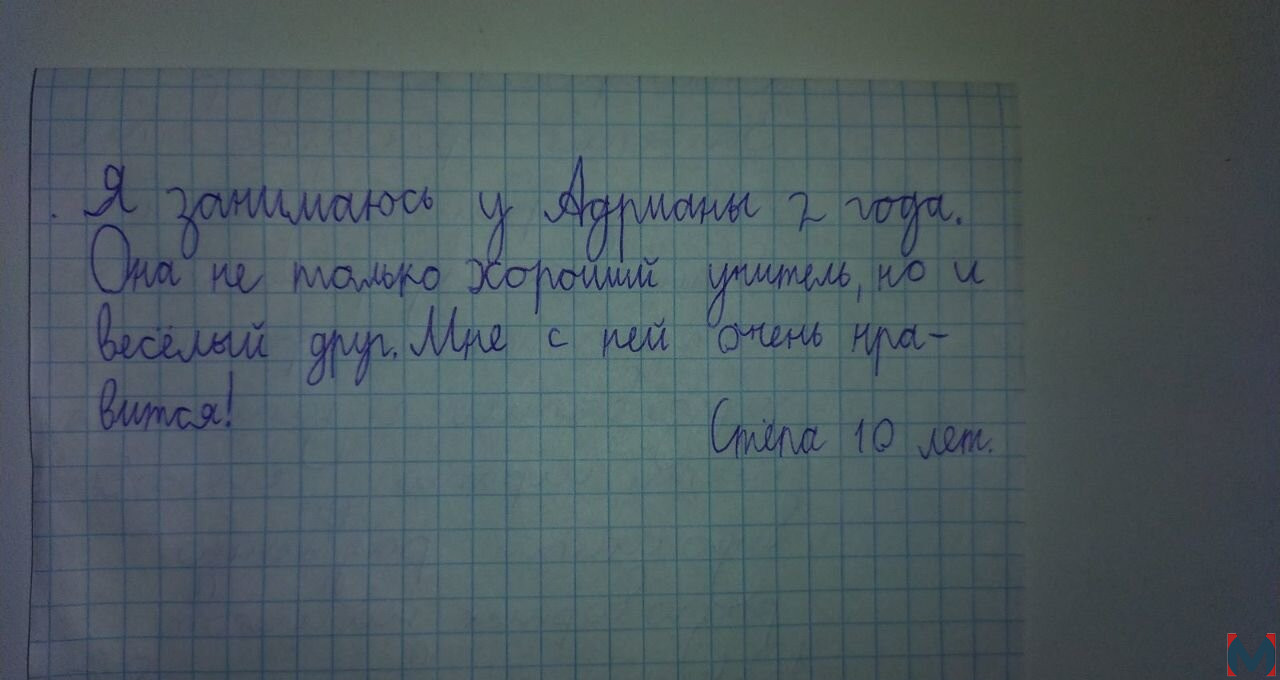 Я занимаюсь у Адрианы 2 года.
Она не только хороший учитель, но и
весёлый друг. Мне с ней очень нра-
вится!
Стёпа 10 лет.
M